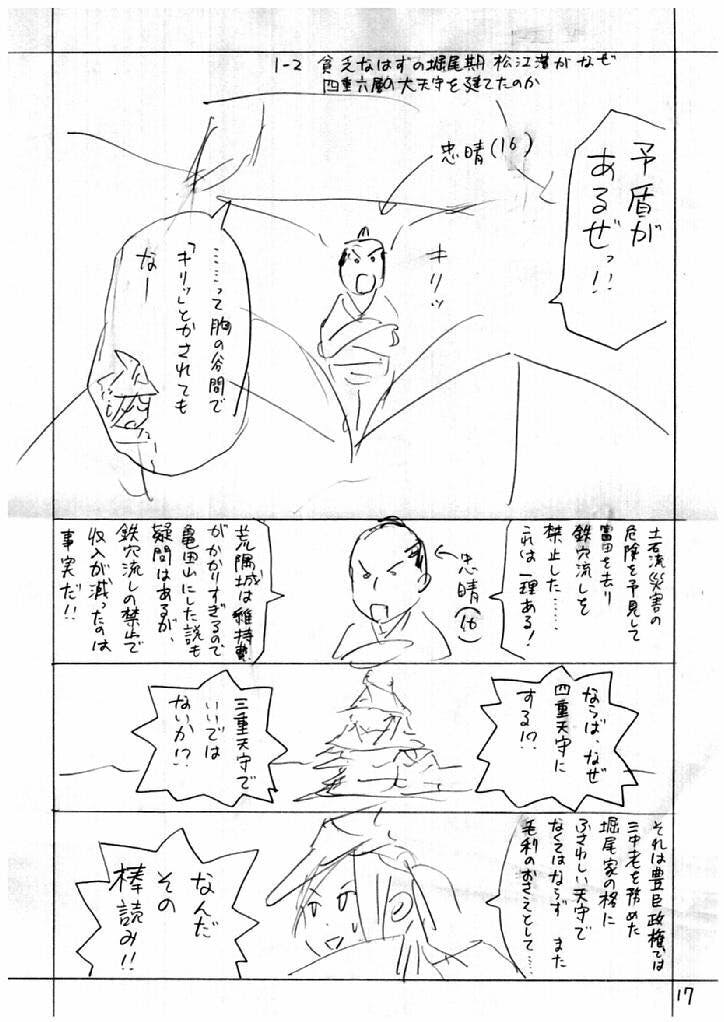 1-2 貧乏なはずの堀尾期 松江藩がなぜ
四重六層の大天守を建てたのか
矛盾が
あるぜっ!!
忠晴(16)
キリッ
……って胸の谷間で
「キリッ」とかされても
なー
土石流災害の
危険を予見して
富田を去り
鉄穴流しを
禁止した……
これは一理ある!
忠晴(16)
荒隈城は維持費
がかかりすぎるので
亀田山にした説も
疑問はあるが、
鉄穴流しの禁止で
収入が減ったのは
事実だ!!
ならば、なぜ
四重天守に
する!?
三重天守で
いいでは
ないか!?
それは豊臣政権では
三中老を務めた
堀尾家の格に
ふさわしい天守で
なくてはならず また
毛利のおさえとして……
なんだ
その
棒読み!!
17